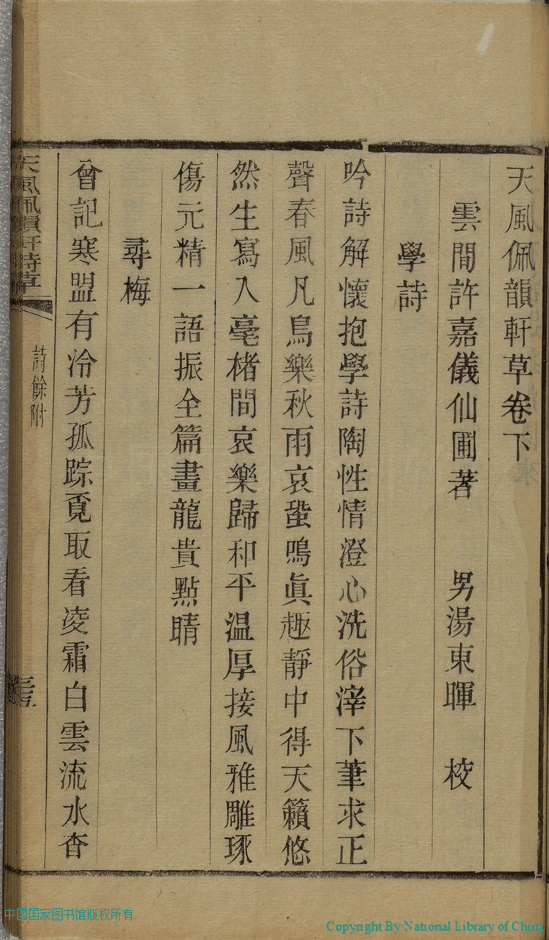 天風佩韻軒草卷下
雲間許嘉儀仙圃著　男湯東暉　校
學詩
吟詩解懷抱學詩陶性情澄心洗俗滓下筆求正
聲春風凡鳥樂秋雨哀蛩鳴眞趣靜中得天籟悠
然生寫入毫楮間哀樂歸和平温厚接風雅雕琢
傷元精一語振全篇畫龍貴點睛
尋梅
曾記寒盟有冷芳孤踪覔取看凌霜白雲流水杳
天風佩韻軒詩草
詩餘附
中国国家图书馆版权所有
Copyright By National Library of China